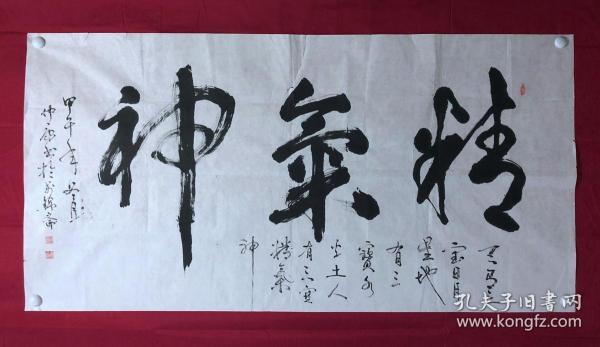 精氣神
天有三
宝日月
星地
有三
寶水
火土人
有三宝
精氣
神
甲午年
孔夫子旧书网
www.kongfz.com